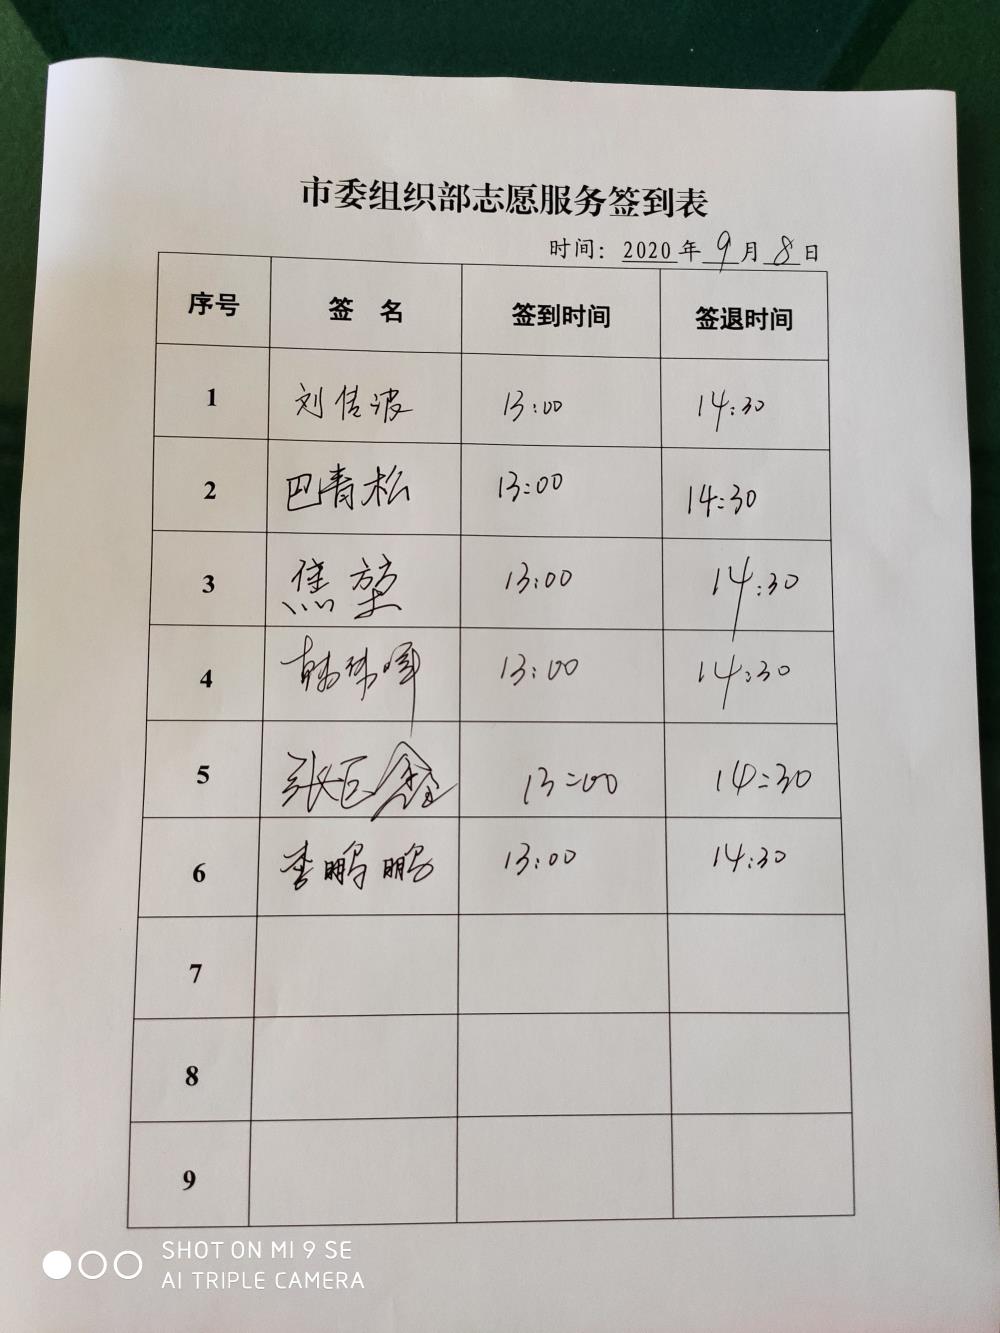 市委组织部志愿服务签到表
时间：2020年9月8日
序号 签 名 签到时间 签退时间
1 刘佳波 13:00 14:30
2 巴青松 13:00 14:30
3 焦堃 13:00 14:30
4 韩伟晖 13:00 14:30
5 张巨鑫 13:00 14:30
6 李鹏鹏 13:00 14:30
7
8
9
SHOT ON MI 9 SE
AI TRIPLE CAMERA